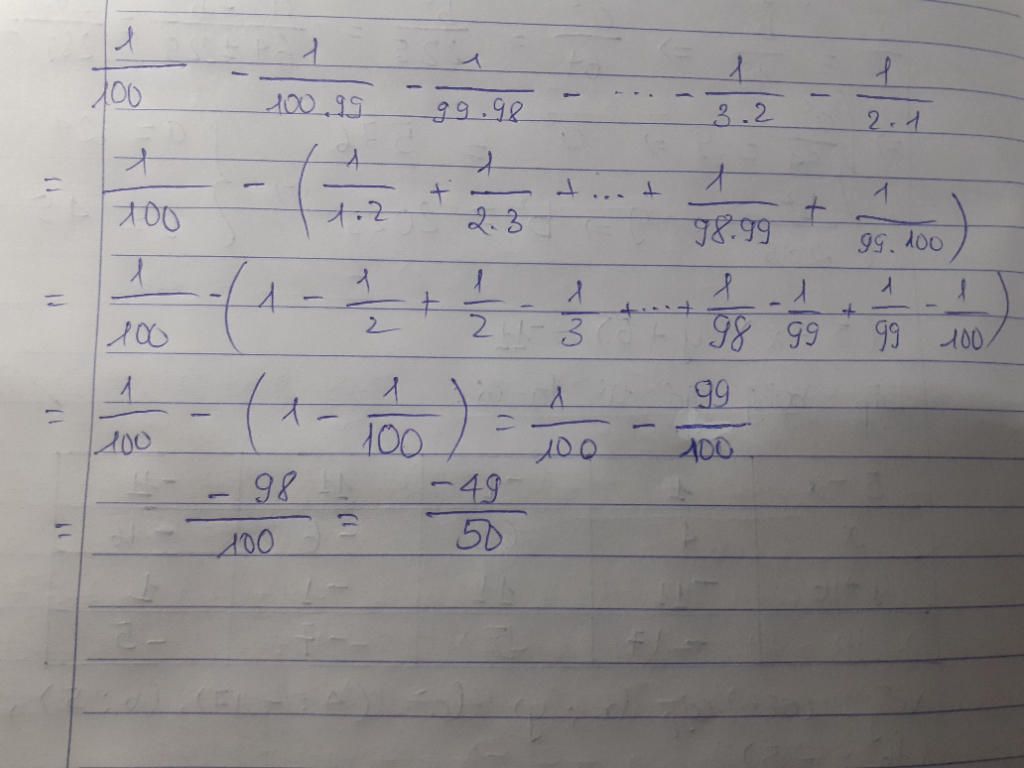 1/100 - 1/100.99 - 1/99.98 - ... - 1/3.2 - 1/2.1
= 1/100 - (1/1.2 + 1/2.3 + ... + 1/98.99 + 1/99.100)
= 1/100 - (1 - 1/2 + 1/2 - 1/3 + ... + 1/98 - 1/99 + 1/99 - 1/100)
= 1/100 - (1 - 1/100) = 1/100 - 99/100
= -98/100 = -49/50